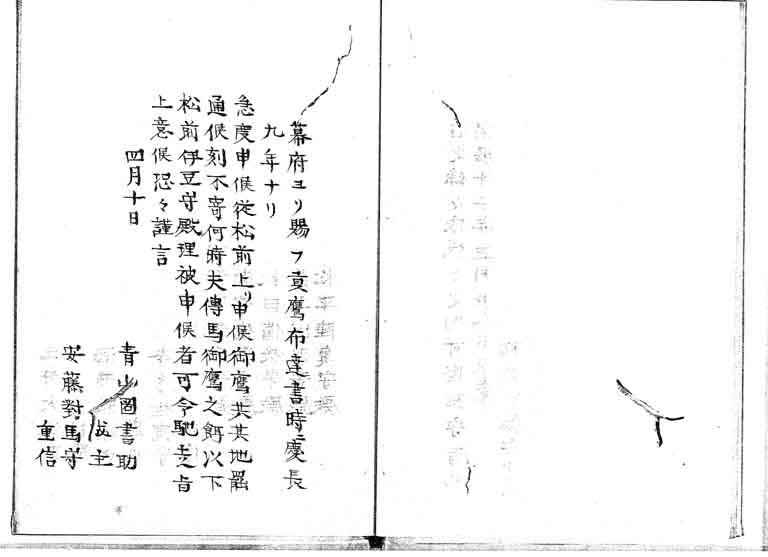 幕府ヨリ賜フ貢鷹布達書時ニ慶長
九年ナリ
急度申候従松前上リ申候御鷹共其地罷
通候刻不寄何時夫傳馬御鷹之餌以下
松前伊豆守殿理被申候者可令馳走旨
上意候恐々謹言
四月十日
青山圖書助
成重
安藤對馬守
重信